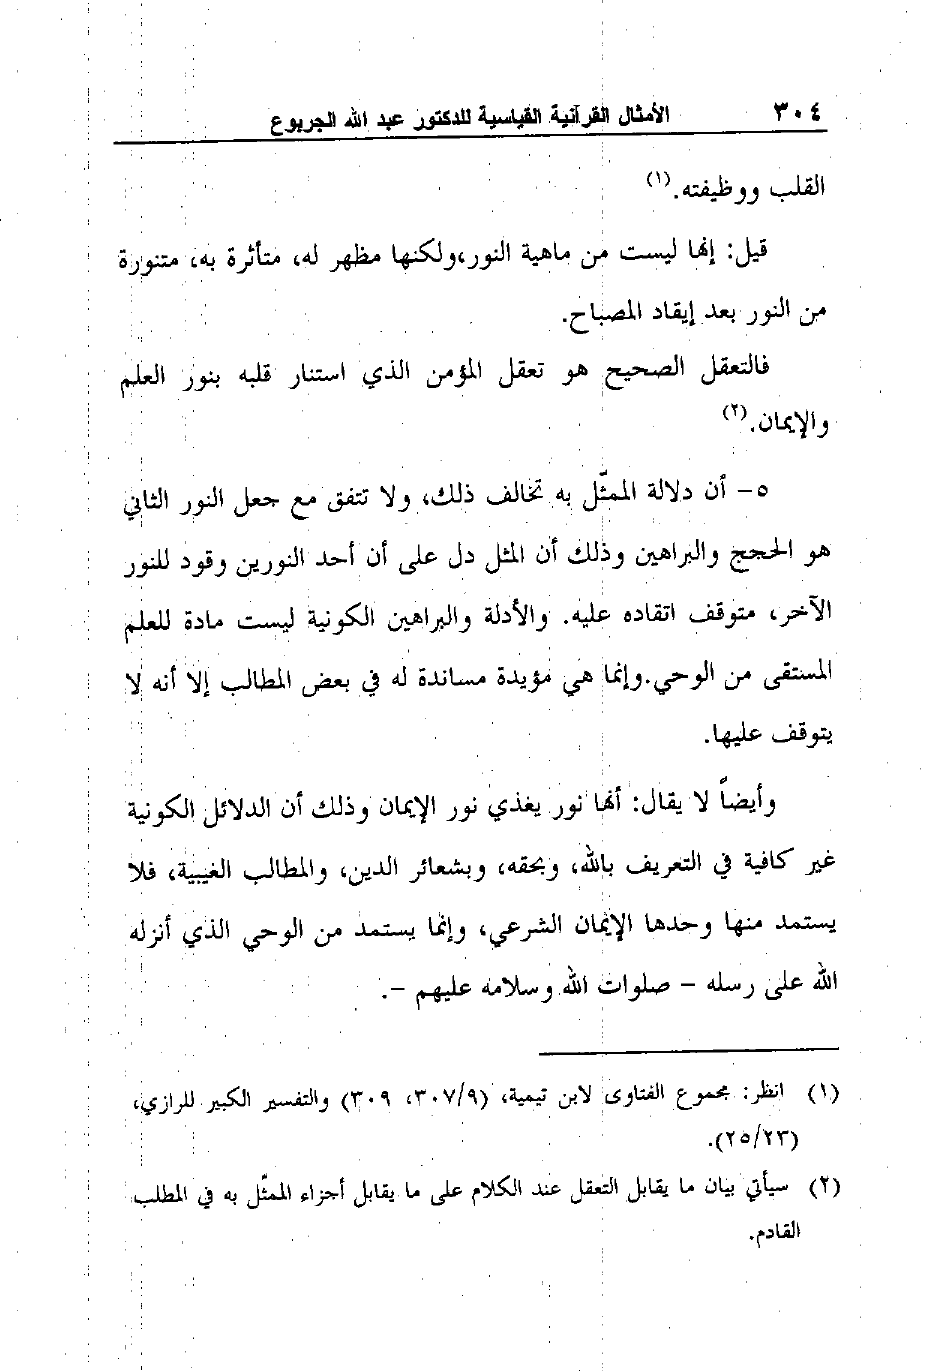 ٣٠٤ الأمثال القرآنية القياسية للدكتور عبد الله الجربوع
القلب ووظيفته.(١)
قيل: إنها ليست من ماهية النور،ولكنها مظهر له، متأثرة به، متنورة
من النور بعد إيقاد المصباح.
فالتعقل الصحيح هو تعقل المؤمن الذي استنار قلبه بنور العلم
والإيمان.(٢)
٥- أن دلالة الممثّل به تخالف ذلك، ولا تتفق مع جعل النور الثاني
هو الحجج والبراهين وذلك أن المثل دل على أن أحد النورين وقود للنور
الآخر، متوقف اتقاده عليه. والأدلة والبراهين الكونية ليست مادة للعلم
المستقى من الوحي.وإنما هي مؤيدة مساندة له في بعض المطالب إلا أنه لا
يتوقف عليها.
وأيضاً لا يقال: أنها نور يغذي نور الإيمان وذلك أن الدلائل الكونية
غير كافية في التعريف بالله، وبحقه، وبشعائر الدين، والمطالب الغيبية، فلا
يستمد منها وحدها الإيمان الشرعي، وإنما يستمد من الوحي الذي أنزله
الله على رسله - صلوات الله وسلامه عليهم -.
(١) انظر: مجموع الفتاوى لابن تيمية، (٣٠٧/٩، ٣٠٩) والتفسير الكبير للرازي،
(٢٥/٢٣).
(٢) سيأتي بيان ما يقابل التعقل عند الكلام على ما يقابل أجزاء الممثّل به في المطلب
القادم.